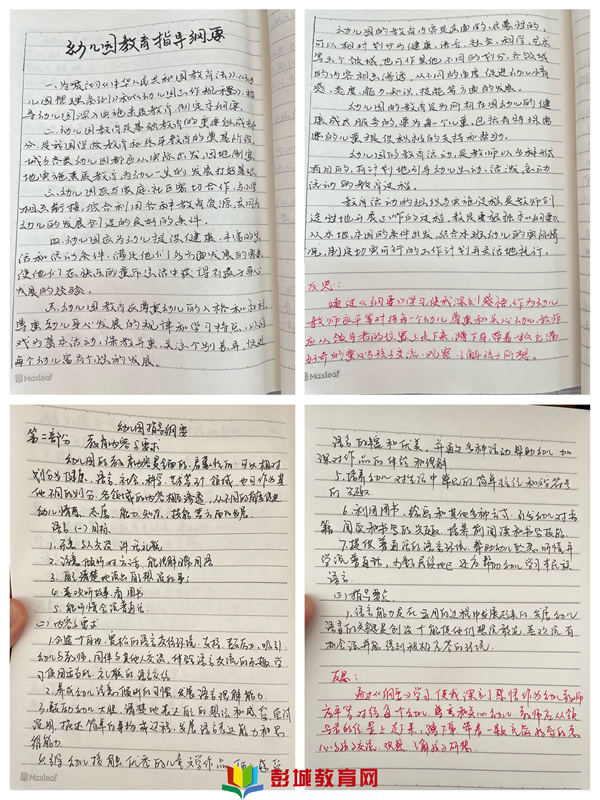 幼儿园教育指导纲要
一、为贯彻《中华人民共和国教育法》、《幼
儿园管理条例》和《幼儿园工作规程》,指
导幼儿园深入实施素质教育,制定本纲要。
二、幼儿园教育是基础教育的重要组成部
分,是我国学校教育和终身教育的奠基阶段。
城乡各类幼儿园都应从实际出发,因地制宜
地实施素质教育,为幼儿一生的发展打好基础。
三、幼儿园应与家庭、社区密切合作,与小学
相互衔接,综合利用各种教育资源,共同为
幼儿的发展创造良好的条件。
四、幼儿园应为幼儿提供健康、丰富的生
活和活动条件,满足他们多方面发展的需要,
使他们在快乐的童年生活中获得有益于身心
发展的经验。
五、幼儿园教育应尊重幼儿的人格和权利,
尊重幼儿身心发展的规律和学习特点,以游
戏为基本活动,保教并重,关注个别差异,促进
每个幼儿富有个性的发展。
Maxleaf
幼儿园的教育内容是全面的、启蒙性的,
可以相对划分为健康、语言、社会、科学、艺术
等五个领域,也可作其他不同的划分。各领域
的内容相互渗透,从不同的角度促进幼儿情
感、态度、能力、知识、技能等方面的发展。
幼儿园的教育是为所有在园幼儿的健康
成长服务的,要为每一个儿童,包括有特殊
需要的儿童提供积极的支持和帮助。
幼儿园的教育活动,是教师以多种形式
有目的、有计划地引导幼儿生动、活泼、主动
活动的教育过程。
教育活动的组织与实施过程是教师创
造性地开展工作的过程。教师要根据本《纲要》,
从本地、本园的条件出发,结合本班幼儿的实际情
况,制定切实可行的工作计划并灵活地执行。
反思:
通过《纲要》学习,使我深刻感悟,作为幼儿
教师应平等对待每一个幼儿,尊重和关心幼儿,教师
应从领导者的位置上走下来,蹲下身,带着一颗充满
好奇的童心与孩子交流,观察、了解孩子所想。
Maxleaf
幼儿园指导纲要
第二部分 教育内容与要求
幼儿园的教育内容是全面的、启蒙性的,可以相对
划分为健康、语言、社会、科学、艺术等五个领域,也可作其
他不同的划分。各领域的内容相互渗透,从不同的角度促进
幼儿情感、态度、能力、知识、技能等方面的发展。
语言 (一)目标
1.乐意与人交谈,讲话礼貌
2.注意倾听对方讲话,能理解日常用语
3.能清楚地说出自己想说的事;
4.喜欢听故事、看图书
5.能听懂和会说普通话。
(二)内容与要求
1.创造一个自由、宽松的语言交往环境,支持、鼓励、吸引
幼儿与教师、同伴或其他人交谈,体验语言交流的乐趣,学
习使用适当的、礼貌的语言交往
2.养成幼儿注意倾听的习惯,发展语言理解能力。
3.鼓励幼儿大胆、清楚地表达自己的想法和感受,尝试
说明、描述简单的事物或过程,发展语言表达能力和思
维能力
4.引导幼儿接触优秀的儿童文学作品,使之感受
Maxleaf
语言的丰富和优美,并通过多种活动帮助幼儿加
深对作品的体验和理解
5.培养幼儿对生活中常见的简单标记和文字符号
的兴趣
6.利用图书、绘画和其他多种方式,引发幼儿对书
籍、阅读和书写的兴趣,培养前阅读和书写技能。
7.提供普通话的语言环境,帮助幼儿熟悉、听懂并
学说普通话,少数民族地区还应帮助幼儿学习本民族
语言
(三)指导要点
1.语言能力是在运用的过程中发展起来的,发展幼儿
语言的关键是创设一个能使他们想说、敢说、喜欢说、有
机会说并能得到积极应答的环境。
反思:
通过《纲要》学习,使我深刻感悟作为幼儿教师
应平等对待每个幼儿,尊重和关心幼儿,教师应从领
导者的位置上走下来,蹲下身,带着一颗充满好奇的童
心与孩子交流,观察、了解孩子所想。
彭城教育网